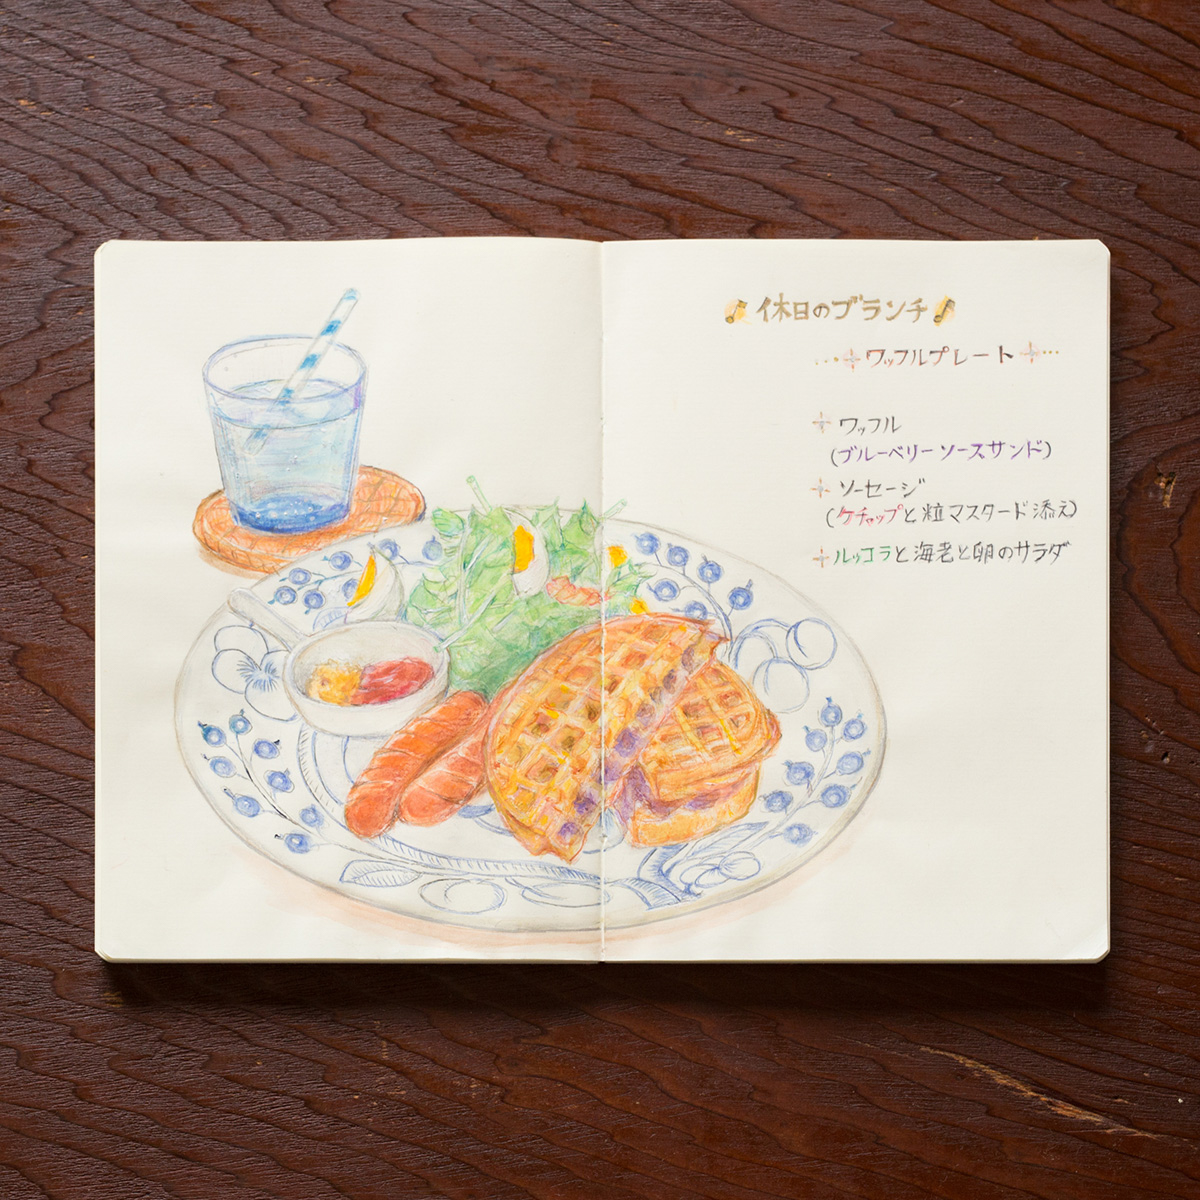 ♪休日のブランチ♪
ワッフルプレート
ワッフル
(ブルーベリーソースサンド)
ソーセージ
(ケチャップと粒マスタード添え)
ルッコラと海老と卵のサラダ